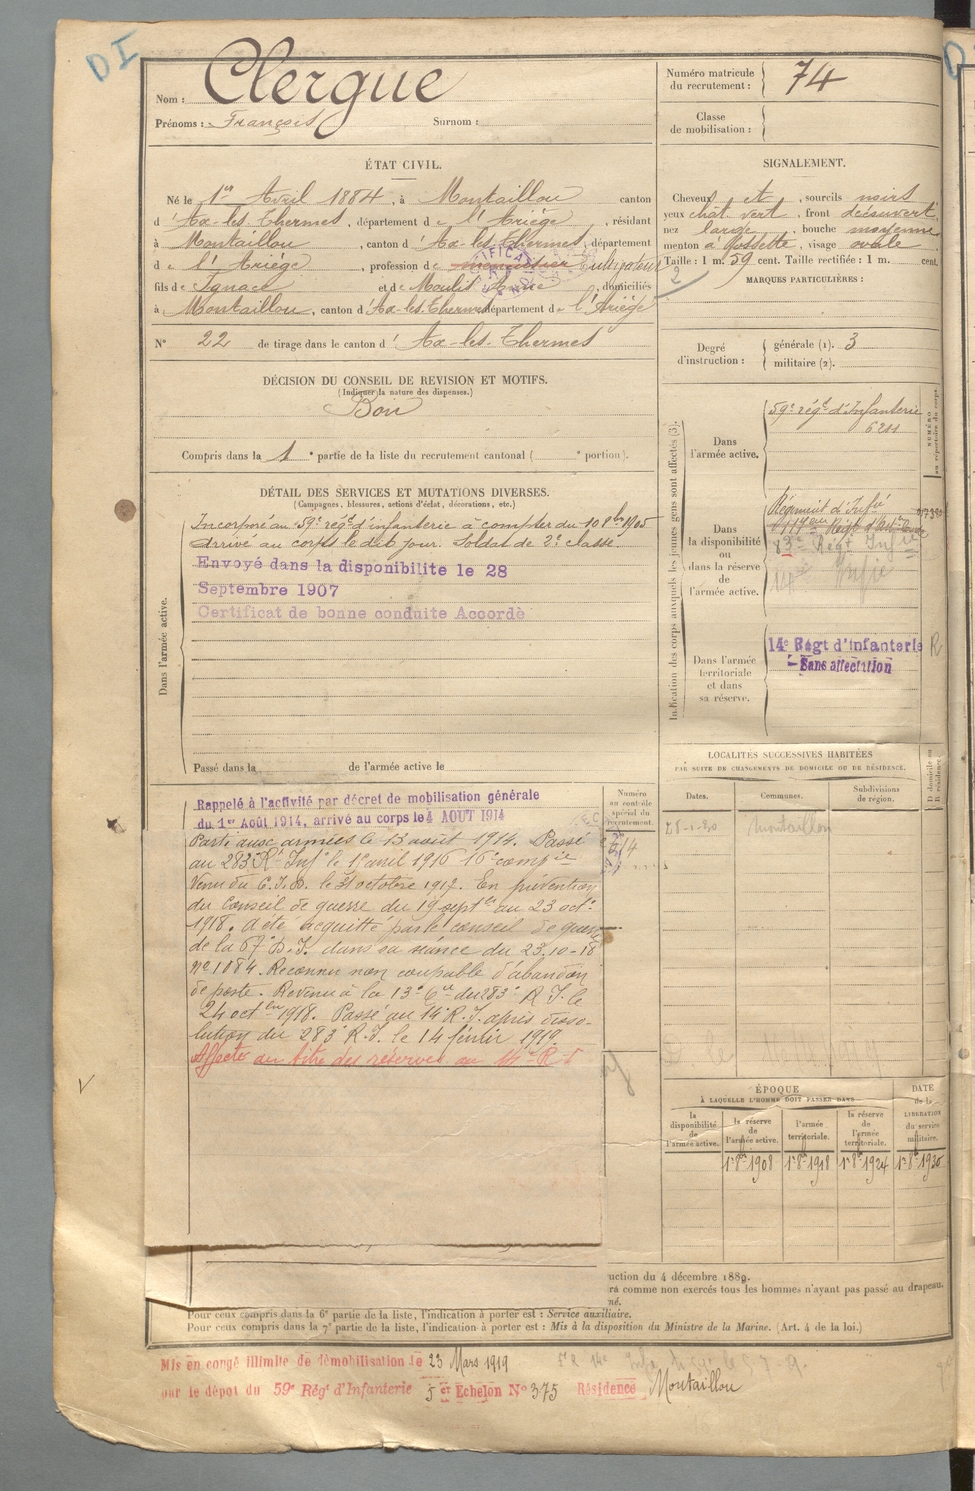 DI
Nom : Clergue
Prénoms : François Surnom :
Numéro matricule du recrutement : 74
Classe de mobilisation :
ÉTAT CIVIL.
Né le 1er Avril 1884, à Montaillou canton
d'Ax-les-Thermes, département de l'Ariége, résidant
à Montaillou, canton d'Ax-les-Thermes, département
de l'Ariége, profession de Cultivateur
fils de Ignace et de Moulis Anne, domiciliés
à Montaillou, canton d'Ax-les-Thermes département de l'Ariége
N° 22 de tirage dans le canton d'Ax-les-Thermes
SIGNALEMENT.
Cheveux et, sourcils noirs
yeux chât. vert, front découvert,
nez large, bouche moyenne
menton à fossette, visage ovale
Taille : 1 m. 59 cent. Taille rectifiée : 1 m. cent.
MARQUES PARTICULIÈRES :
2
Degré d'instruction : générale (1). 3
militaire (2).
DÉCISION DU CONSEIL DE REVISION ET MOTIFS.
(Indiquer la nature des dispenses.)
Bon
Compris dans la 1e partie de la liste du recrutement cantonal ( e portion).
DÉTAIL DES SERVICES ET MUTATIONS DIVERSES.
(Campagnes, blessures, actions d'éclat, décorations, etc.)
Dans l'armée active.
Incorporé au 59e régt d'infanterie à compter du 10 8bre 1905
Arrivé au corps le dit jour. Soldat de 2e classe.
Envoyé dans la disponibilite le 28
Septembre 1907
Certificat de bonne conduite Accordè
Passé dans la de l'armée active le
Rappelé à l'activité par décret de mobilisation générale
du 1er Août 1914, arrivé au corps le 4 AOUT 1914
Parti aux armées le 13 août 1914. Passé
au 283e R. Infie le 1er avril 1916 16e compie
Venu du C.I.D. le 31 octobre 1917. En prévention
du Conseil de guerre du 19 septbre au 23 octe
1918. A été acquitté par le conseil de guerre
de la 67e D.I. dans sa séance du 23.10-18
No 1084. Reconnu non coupable d'abandon
de poste. Revenu à la 13e Cie du 283e R I. le
24 octbre 1918. Passé au 14e R.I. après disso-
lution du 283e R.I. le 14 février 1919.
Affecté au titre des réserves au 14e R I
Numéro au contrôle spécial du recrutement.
Indication des corps auxquels les jeunes gens sont affectés (3).
NUMÉRO au répertoire du corps.
Dans l'armée active.
59e régt d'Infanterie
6211
Dans la disponibilité ou dans la réserve de l'armée active.
Régiment d'Infie
83e Régt Infie
14e Infie
Dans l'armée territoriale et dans sa réserve.
14e Régt d'infanterie R
Sans affectation
LOCALITÉS SUCCESSIVES HABITÉES
PAR SUITE DE CHANGEMENTS DE DOMICILE OU DE RÉSIDENCE.
D. domicile ou R. résidence.
Dates. Communes. Subdivisions de région.
Montaillou
ÉPOQUE
À LAQUELLE L'HOMME DOIT PASSER DANS
DATE de la LIBÉRATION du service militaire.
la disponibilité de l'armée active.
la réserve de l'armée active.
l'armée territoriale.
la réserve de l'armée territoriale.
1r 8bre 1908 1r 8bre 1918 1r 8bre 1924 1r 8bre 1930
uction du 4 décembre 1889.
ra comme non exercés tous les hommes n'ayant pas passé au drapeau.
né.
Pour ceux compris dans la 6e partie de la liste, l'indication à porter est : Service auxiliaire.
Pour ceux compris dans la 7e partie de la liste, l'indication à porter est : Mis à la disposition du Ministre de la Marine. (Art. 4 de la loi.)
Mis en congé illimité de démobilisation le 23 Mars 1919
par le dépôt du 59e Régt d'Infanterie 5e Echelon No 375 Résidence Montaillou